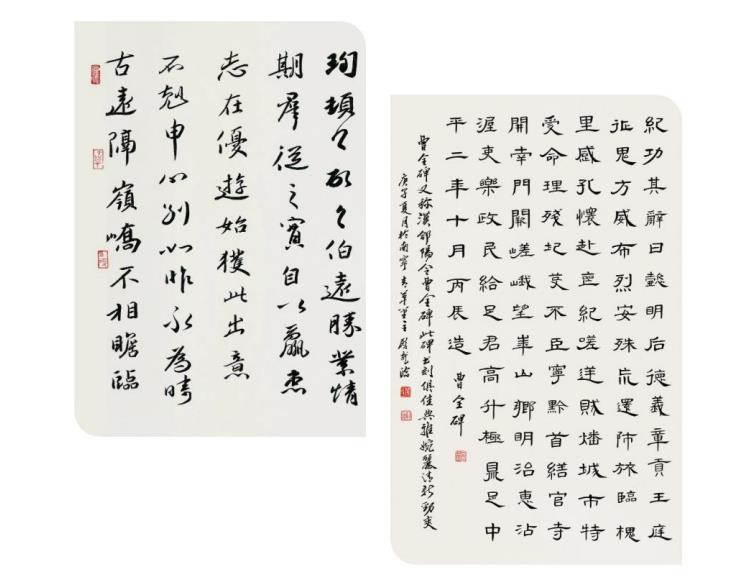 珣頓首頓首伯遠勝業情
期羣從之寳自以羸患
志在優遊始獲此出意
不剋申分別如昨永為疇
古遠隔嶺嶠不相瞻臨
紀功其辭曰懿明后德義章貢王庭
征鬼方威布烈安殊荒還師旅臨槐
里感孔懷赴喪紀嗟逆賊燔城市特
受命理殘圮芟不臣寧黔首繕官寺
開南門闕嵯峨望華山鄉明治惠沾
渥吏樂政民給足君高升極鼎足中
平二年十月丙辰造 曹全碑
曹全碑又稱漢郃陽令曹全碑此碑書刻俱佳典雅婉麗清新勁爽
庚子夏月於南寧青草堂主